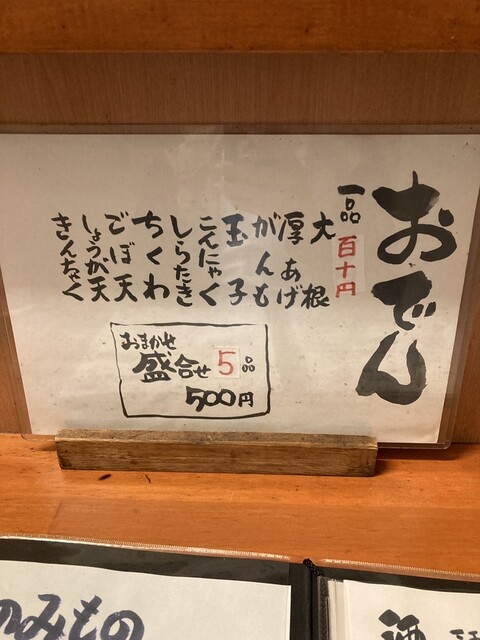 おでん
一品 百十円
大根
厚あげ
がんも
玉子
こんにゃく
しらたき
ちくわ
ごぼ天
しょうが天
きんちゃく
おまかせ
盛合せ 5品
500円
のみもの
酒